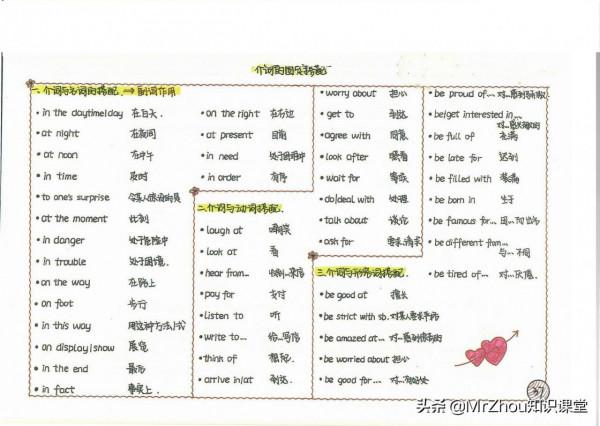 介词的固定搭配
一、介词与名词的搭配 ⇒ 副词作用
• in the daytime/day 在白天.
• at night 在夜间
• at noon 在中午
• in time 及时
• to one's surprise 令某人惊讶的是
• at the moment 此刻
• in danger 处于危险中
• in trouble 处于困境.
• on the way 在路上
• on foot 步行
• in this way 用这种方法/
• on display/show 展览
• in the end 最后
• in fact 事实上.
• on the right 在右边
• at present 目前
• in need 处于困难中
• in order 有序
二.介词与动词搭配.
• laugh at 嘲笑
• look at 看
• hear from... 收到...来信
• pay for 支付
• listen to 听
• write to... 给...写信
• think of 想起.
• arrive in/at 到达.
• worry about 担心
• get to 到达
• agree with 同意
• look after 照看
• wait for 等候
• do/deal with 处理
• talk about 谈论
• ask for 要求.请求
三.介词与形容词搭配.
• be good at 擅长
• be strict with sb. 对某人要求严格
• be amazed at... 对...感到惊讶的
• be worried about 担心
• be good for... 对...有好处
• be proud of... 对...感到骄傲
• be/get interested in... 对...感兴趣的
• be full of 充满
• be late for 迟到
• be filled with 装满
• be born in 生于
• be famous for... 因...而出名
• be different from... 与...不同
• be tired of... 对...厌倦.
37
头条 @MrZhou知识课堂